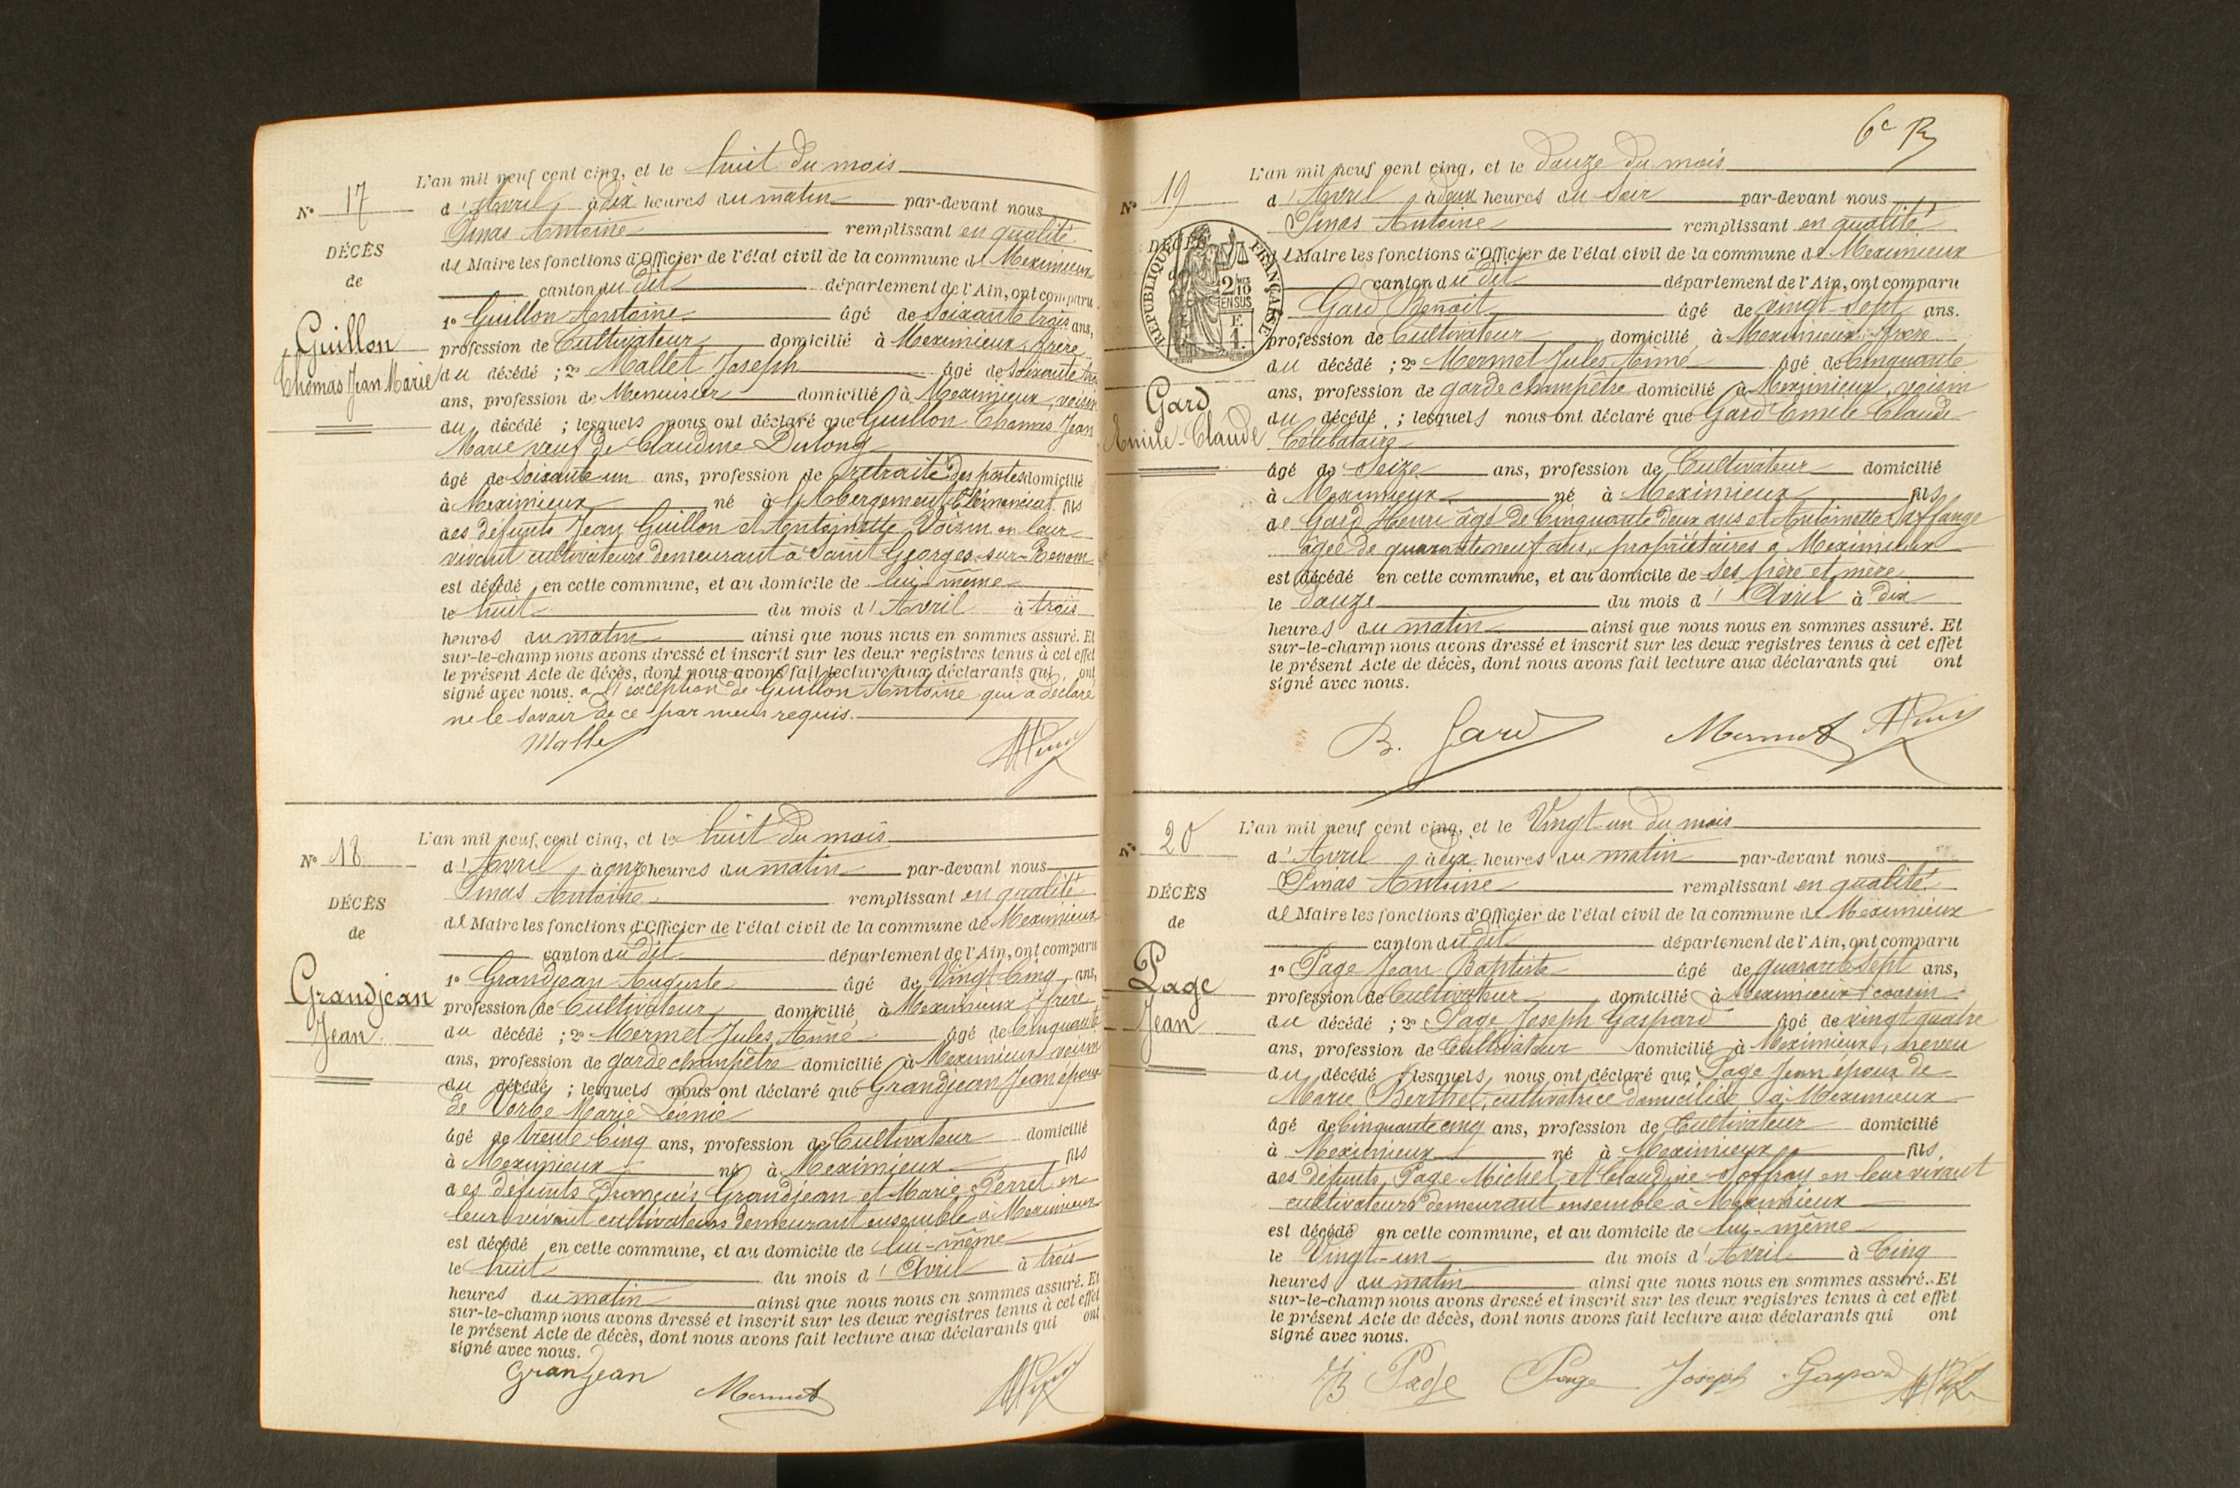 L'an mil neuf cent cinq, et le huit du mois
N° 17
d'Avril, à dix heures du matin par-devant nous
Pinas Antoine remplissant en qualité
DÉCÈS
de Maire les fonctions d'Officier de l'état civil de la commune de Meximieux
de
canton du dit département de l'Ain, ont comparu
1° Guillon Antoine âgé de soixante trois ans,
Guillon
profession de Cultivateur domicilié à Meximieux, frère
Thomas Jean Marie
du décédé ; 2° Mallet Joseph âgé de soixante
ans, profession de Menuisier domicilié à Meximieux, voisin
du décédé ; lesquels nous ont déclaré que Guillon Thomas Jean
Marie veuf de Claudine Dulong
âgé de soixante un ans, profession de retraité des postes domicilié
à Meximieux né à l'Abergement Clémenciat fils
des défunts Jean Guillon et Antoinette Voisin en leur
vivant cultivateurs demeurant à Saint Georges-sur-Renom
est décédé en cette commune, et au domicile de lui-même
le huit du mois d'Avril à trois
heures du matin ainsi que nous nous en sommes assuré. Et
sur-le-champ nous avons dressé et inscrit sur les deux registres tenus à cet effet
le présent Acte de décès, dont nous avons fait lecture aux déclarants qui ont
signé avec nous. à l'exception de Guillon Antoine qui a déclaré
ne le savoir de ce par nous requis.
Mallet
L'an mil neuf cent cinq, et le huit du mois
N° 18
d'Avril, à onze heures du matin par-devant nous
Pinas Antoine remplissant en qualité
DÉCÈS
de Maire les fonctions d'Officier de l'état civil de la commune de Meximieux
de
canton du dit département de l'Ain, ont comparu
1° Grandjean Auguste âgé de Vingt Cinq ans,
Grandjean
profession de Cultivateur domicilié à Meximieux, frère
Jean
du décédé ; 2° Mermet Jules Aimé âgé de Cinquante
ans, profession de garde champêtre domicilié à Meximieux voisin
du décédé ; lesquels nous ont déclaré que Grandjean Jean époux
de Vorbe Marie Léonie
âgé de trente Cinq ans, profession de Cultivateur domicilié
à Meximieux né à Meximieux fils
des défunts François Grandjean et Marie Perret en
leur vivant cultivateurs demeurant ensemble à Meximieux
est décédé en cette commune, et au domicile de lui-même
le huit du mois d'Avril à trois
heures du matin ainsi que nous nous en sommes assuré. Et
sur-le-champ nous avons dressé et inscrit sur les deux registres tenus à cet effet
le présent Acte de décès, dont nous avons fait lecture aux déclarants qui ont
signé avec nous.
Grandjean Mermet
6e
L'an mil neuf cent cinq, et le douze du mois
N° 19
d'Avril à deux heures du soir par-devant nous
Pinas Antoine remplissant en qualité
DÉCÈS
RÉPUBLIQUE FRANÇAISE
2/10 EN SUS
de Maire les fonctions d'Officier de l'état civil de la commune de Meximieux
canton du dit département de l'Ain, ont comparu
Gard Benoit âgé de vingt sept ans.
profession de Cultivateur domicilié à Meximieux, frère
du décédé ; 2° Mermet Jules Aimé âgé de Cinquante
ans, profession de garde champêtre domicilié à Meximieux, voisin
Gard
du décédé ; lesquels nous ont déclaré que Gard Emile Claude
Emile-Claude
Célibataire
âgé de Seize ans, profession de Cultivateur domicilié
à Meximieux né à Meximieux fils
de Gard Henri âgé de Cinquante deux ans et Antoinette
âgée de quarante neuf ans, propriétaires à Meximieux
est décédé en cette commune, et au domicile de ses père et mère
le douze du mois d'Avril à dix
heures du matin ainsi que nous nous en sommes assuré. Et
sur-le-champ nous avons dressé et inscrit sur les deux registres tenus à cet effet
le présent Acte de décès, dont nous avons fait lecture aux déclarants qui ont
signé avec nous.
B. Gard Mermet
L'an mil neuf cent cinq, et le Vingt-un du mois
N° 20
d'Avril, à dix heures du matin par-devant nous
Pinas Antoine remplissant en qualité
DÉCÈS
de Maire les fonctions d'Officier de l'état civil de la commune de Meximieux
de
canton du dit département de l'Ain, ont comparu
1° Page Jean Baptiste âgé de quarante sept ans,
Page
profession de Cultivateur domicilié à Meximieux, cousin
Jean
du décédé ; 2° Page Joseph Gaspard âgé de vingt quatre
ans, profession de Cultivateur domicilié à Meximieux, neveu
du décédé ; lesquels nous ont déclaré que Page Jean époux de
Marie Berthet, cultivatrice domiciliée à Meximieux
âgé de Cinquante cinq ans, profession de Cultivateur domicilié
à Meximieux né à Meximieux fils
des défunts Page Michel et Claudine Joffray en leur vivant
cultivateurs demeurant ensemble à Meximieux
est décédé en cette commune, et au domicile de lui-même
le Vingt-un du mois d'Avril à Cinq
heures du matin ainsi que nous nous en sommes assuré. Et
sur-le-champ nous avons dressé et inscrit sur les deux registres tenus à cet effet
le présent Acte de décès, dont nous avons fait lecture aux déclarants qui ont
signé avec nous.
JB Page Page Joseph Gaspard